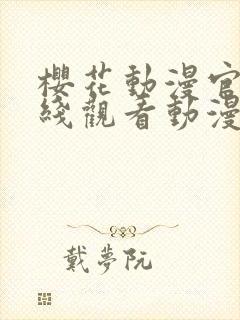 櫻花動漫官
綫觀看動漫
戴夢阮